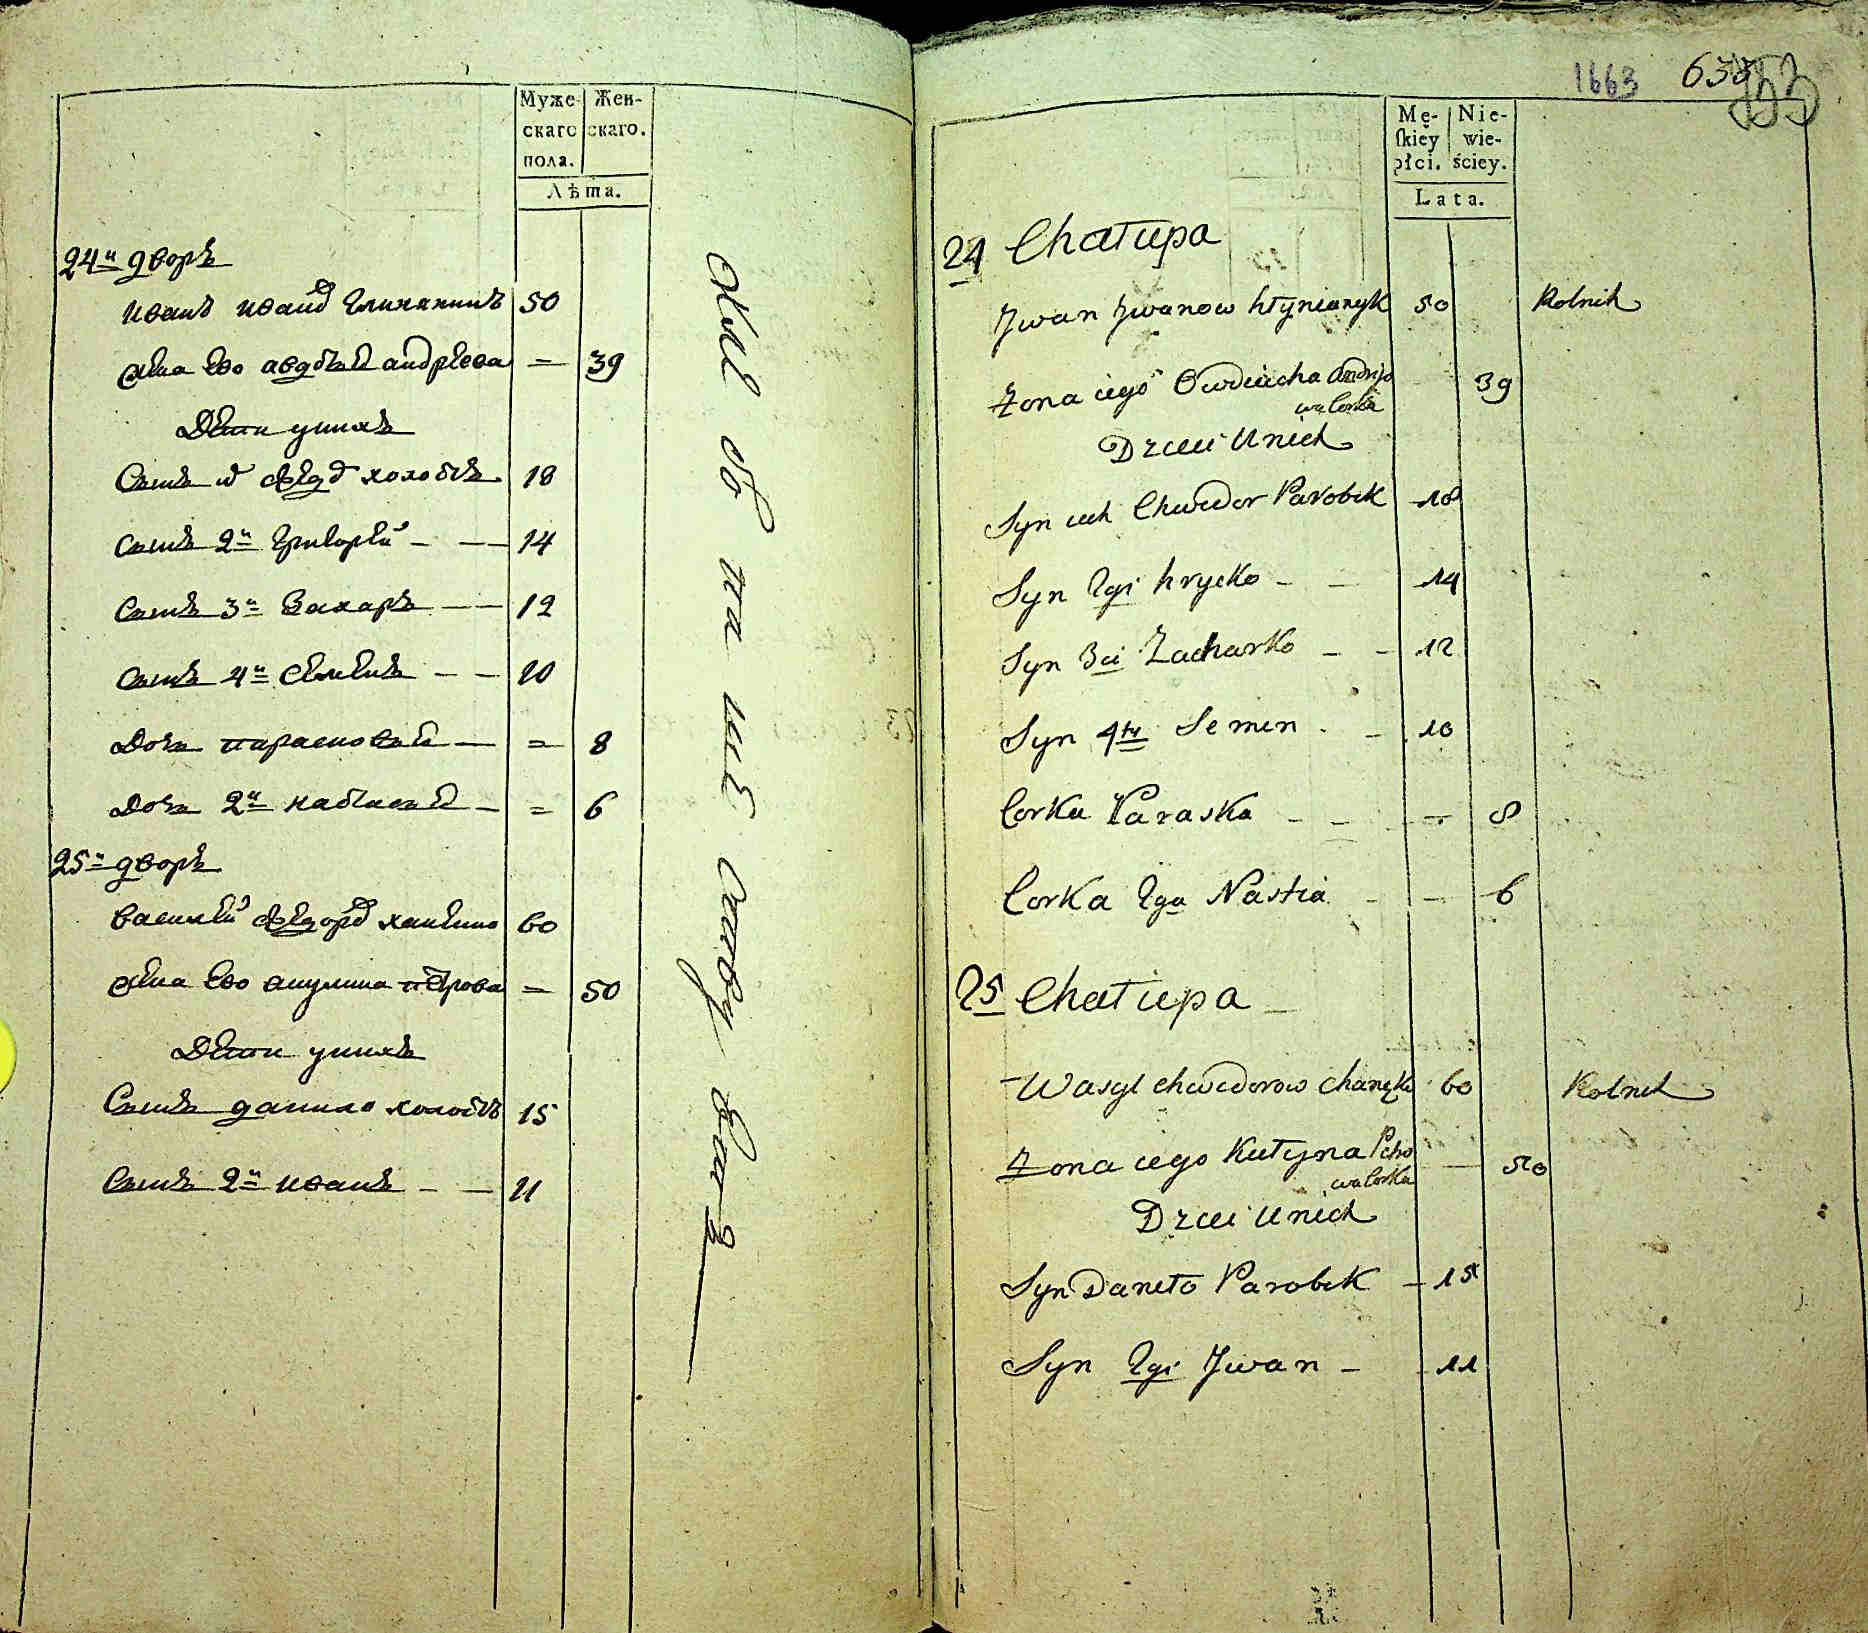 Муже-
скаго
пола.
Жен-
скаго.
Лѣта.
24й дворъ
Иванъ Иванов Глиняникъ 50
жена его Авдотья Андреева — 39
Дети у нихъ
Сынъ й Федор холостъ 18
Сынъ 2й Григорей — — 14
Сынъ 3й Захаръ — — 12
Сынъ 4й Семенъ — — 10
Дочь Парасковья — = 8
Дочь 2я Настасья — = 6
25й дворъ
Василей Федоров 60
жена его Акулина Петрова = 50
Дети у нихъ
Сынъ Данило холостъ 15
Сынъ 2й Иванъ — — 11
1663 633
153
Mę-
ſkiey
płci.
Nie-
wie-
ściey.
Lata.
24 Chałupa
Jwan Jwanow hłynianyk 50 Rolnik
Zona iego Owdiucha Andrijo
wa Corka 39
Dzieci U nich
Syn ich Chwedor Parobek 18
Syn 2gi hryćko — — 14
Syn 3ci Zacharko — — 12
Syn 4ty Semen . — 10
Corka Paraska — — — 8
Corka 2ga Nastia — — 6
25 Chałupa —
Wasyl Chwedorow 60 Rolnik
Zona iego Kułyna Petro
wa Corka — 50
Dzieci U nich
Syn Daneło Parobek — 15
Syn 2gi Jwan — 11